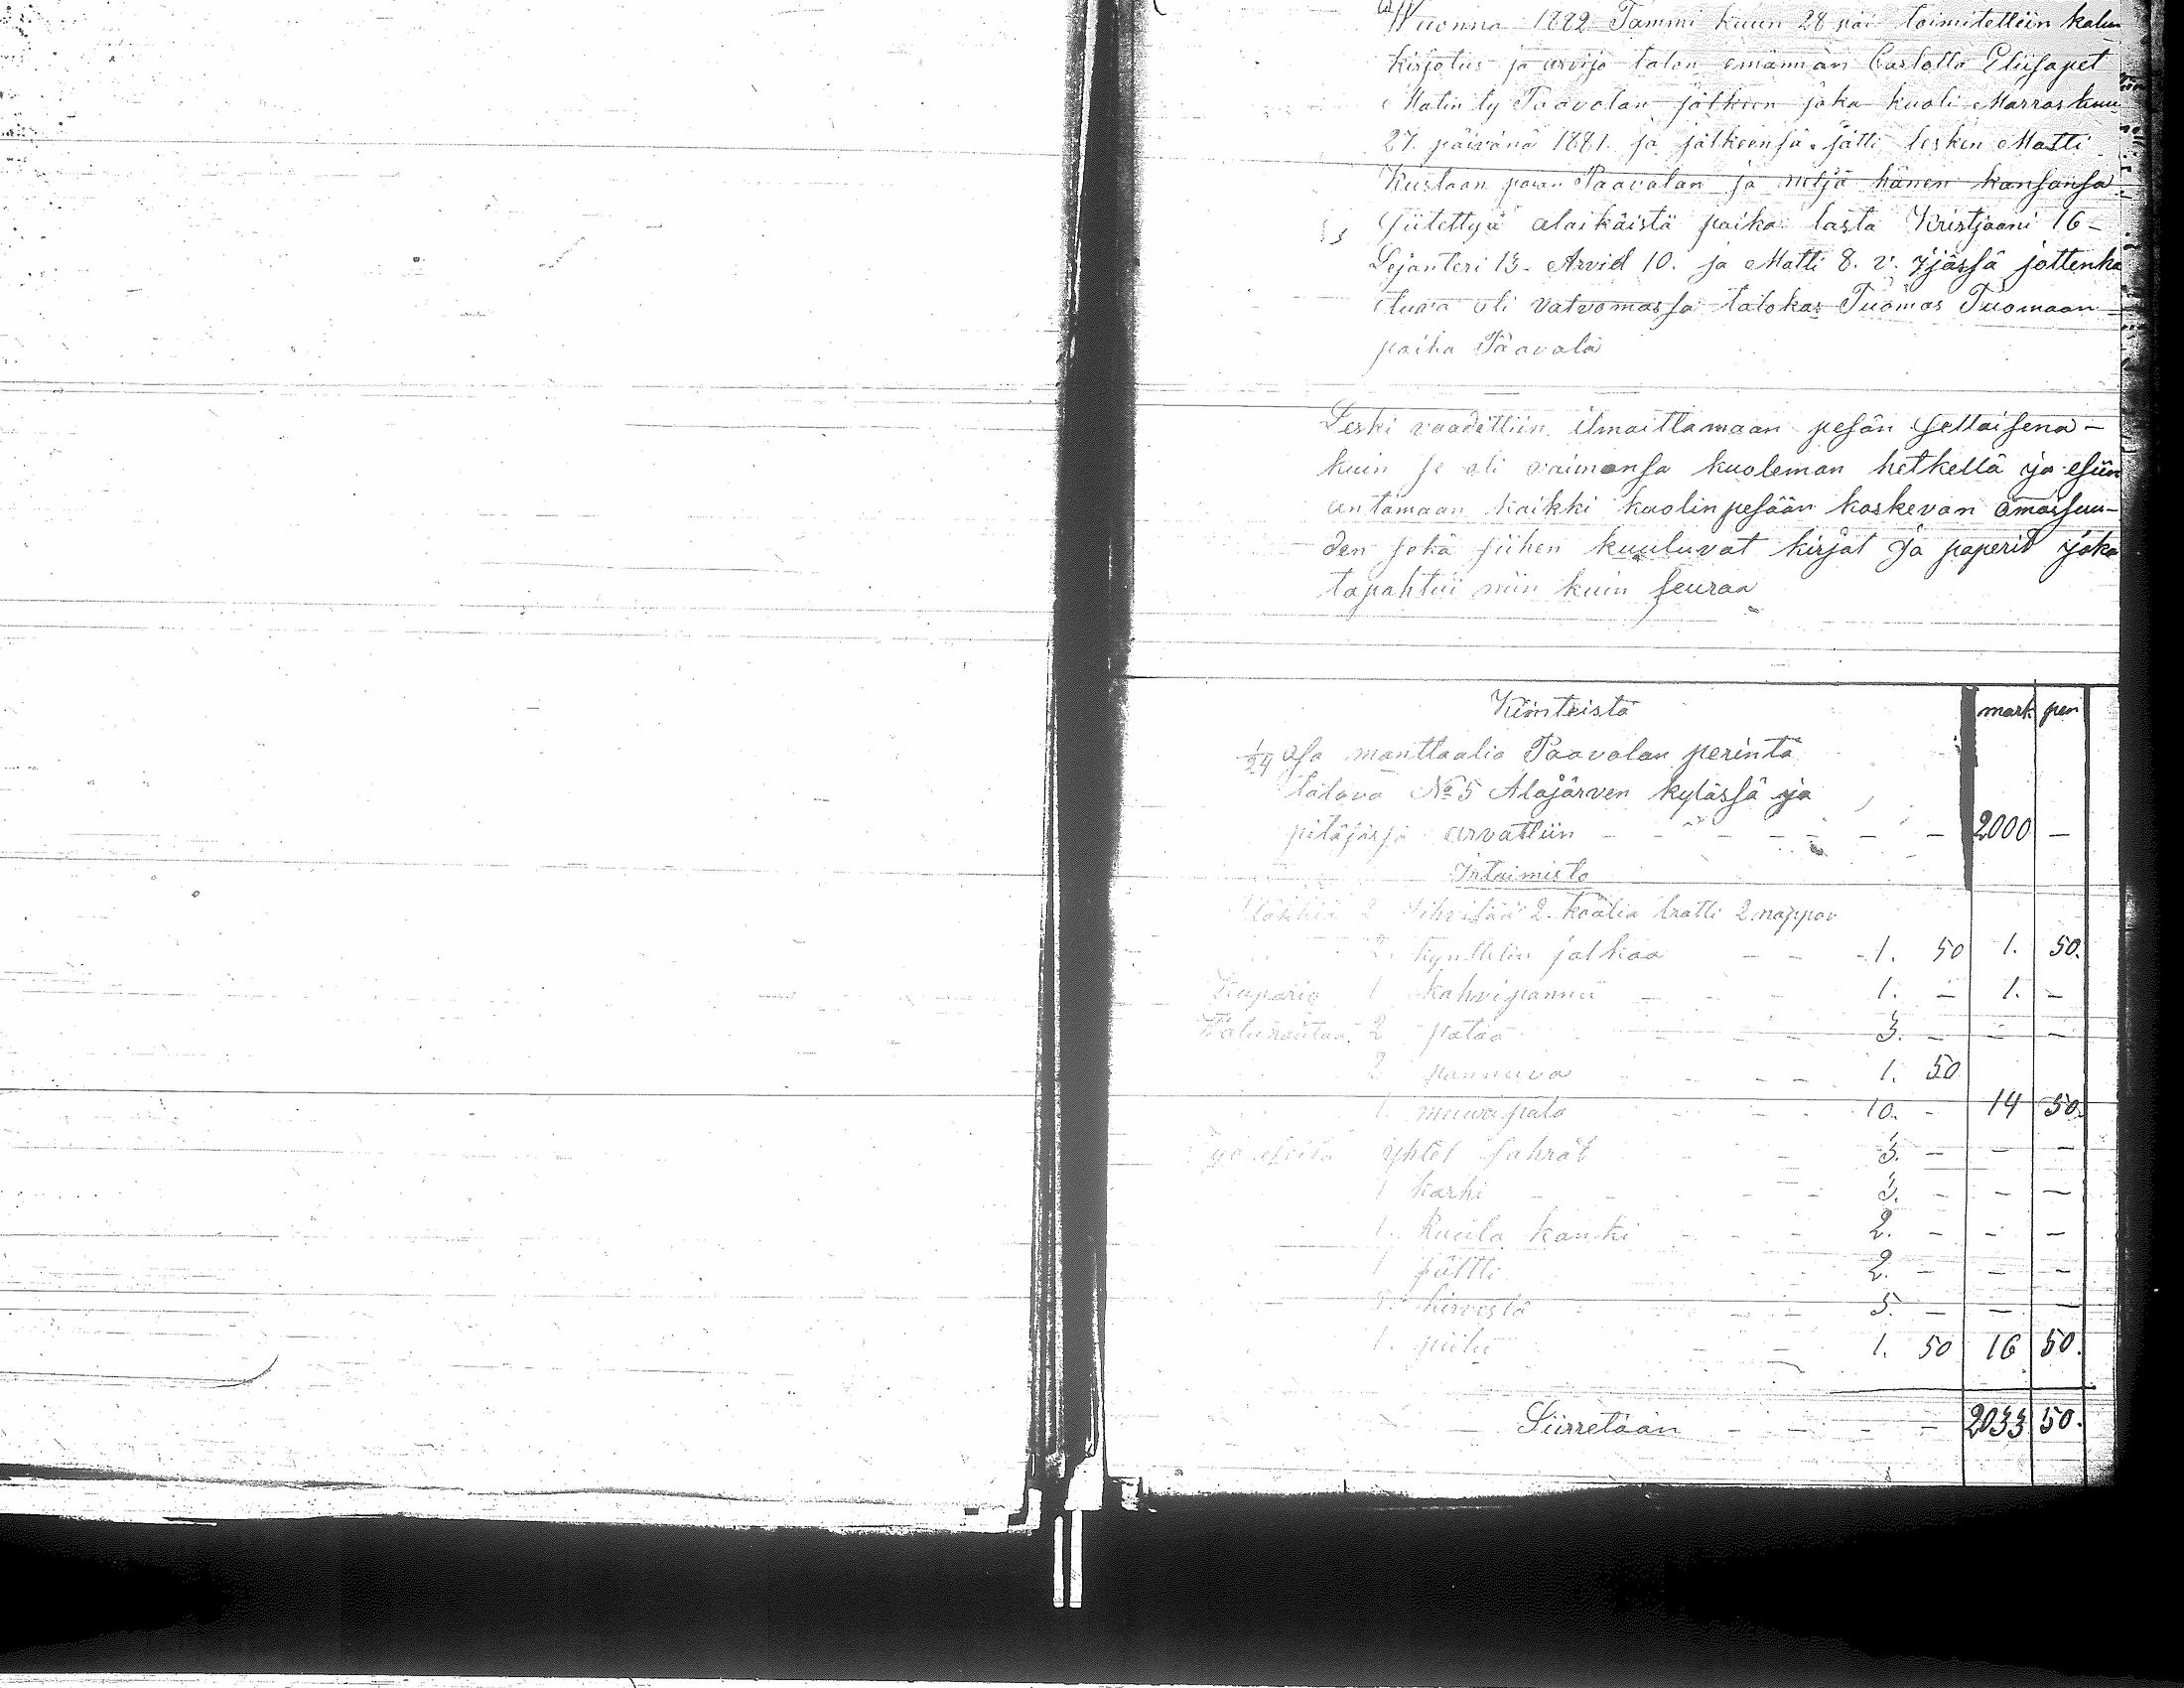 Wuonna 1882 Tammi kuun 28 päi toimitettiin kalun
kirjotus ja arvijo talon emännän Carlotta Eliisapet
Matin ty Paavolan jälkeen joka kuoli Marras kuu
27. päivänä 1881. ja jälkeensä jätti lesken Matti
Kustaan pojan Paavolan ja neljä hänen kansansa
siitettyä alaikäistä poika lasta Kristjaani 16 -
Sejanteri 13. Arvid 10. ja Matti 8. v. ijässä jottenka
etuva oli valvomassa talokas Tuomas Tuomaan
poika Paavola
Leski vaadittiin ilmoittamaan pesän sellaisena -
kuin se oli vaimonsa kuoleman hetkellä ja esiin
antamaan kaikki kuolinpesään koskevan omaisuu-
den sekä siihen kuuluvat kirjat ja paperit joka
tapahtui niin kuin seuraa
Kiinteistö mark pen
1/24 osa manttaalia Paavolan perintö
talova № 5 Alajärven kylässä ja
pitäjässä arvattiin - - - - - - 2000 -
Irtaimisto
Läkkiä 2 Sihvilää 2. koolia tratti 2 nappov
2. kynttelin jalkaa - - 1. 50 1. 50.
Kuparia 1 kahvipannu - - - 1. - 1. -
Valurautaa 2 pataa - - 3. - - -
2 pannuva - - - 1. 50
1. muuri pata - - - 10. - 14 50.
Työ aseita yhdet sahrat - - 3. - - -
1 karhi - - - - 3. - - -
1. Rauta kanki - - - 2. - - -
1 sältti - - 2. - - -
5. kirvestä - - 5. - - -
1. piilu - - 1. 50 16 50.
Siirretään - - - - - 2033 50.